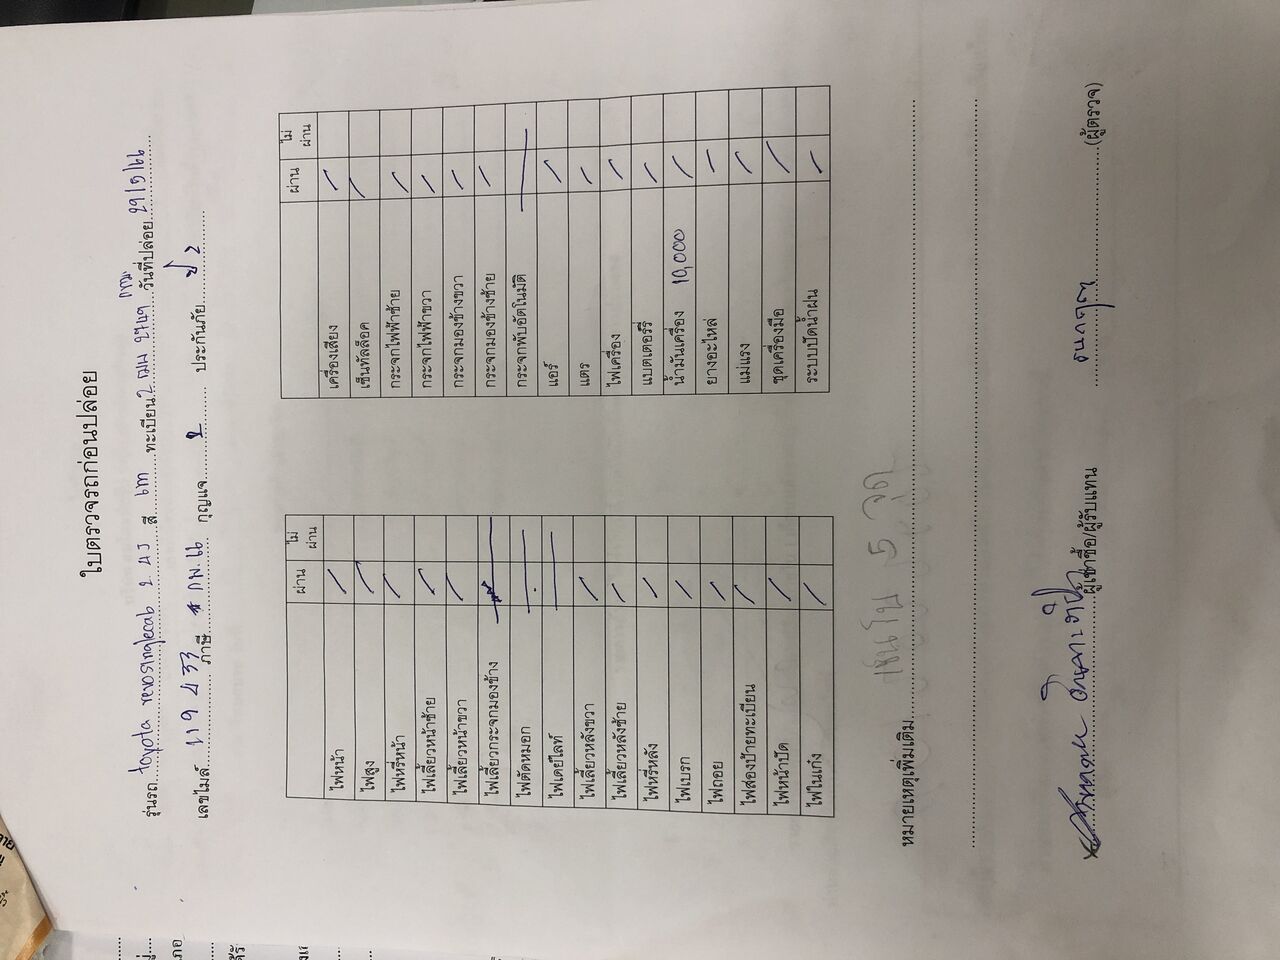 ใบตรวจรถก่อนปล่อย
รุ่นรถ toyota revosinglecab 2.4J สี เทา ทะเบียน 2ฒน 2749 กทม วันที่ปล่อย 29/9/66
เลขไมล์ 119433 ภาษี กพ.66 กุญแจ 2 ประกันภัย ป 2
ผ่าน ไม่ผ่าน
ไฟหน้า /
ไฟสูง /
ไฟหรี่หน้า /
ไฟเลี้ยวหน้าซ้าย /
ไฟเลี้ยวหน้าขวา /
ไฟเลี้ยวกระจกมองข้าง —
ไฟตัดหมอก —
ไฟเดย์ไลท์ —
ไฟเลี้ยวหลังขวา /
ไฟเลี้ยวหลังซ้าย /
ไฟหรี่หลัง /
ไฟเบรก /
ไฟถอย /
ไฟส่องป้ายทะเบียน /
ไฟหน้าปัด /
ไฟในเก๋ง /
ผ่าน ไม่ผ่าน
เครื่องเสียง /
เซ็นทัลล็อค /
กระจกไฟฟ้าซ้าย /
กระจกไฟฟ้าขวา /
กระจกมองข้างขวา /
กระจกมองข้างซ้าย /
กระจกพับอัตโนมัติ —
แอร์ /
แตร /
ไฟเครื่อง /
แบตเตอร์รี่ /
น้ำมันเครื่อง 10,000 /
ยางอะไหล่ /
แม่แรง /
ชุดเครื่องมือ /
ระบบปัดน้ำฝน /
หมายเหตุเพิ่มเติม
ผู้เช่าซื้อ/ผู้รับแทน
(ผู้ตรวจ)